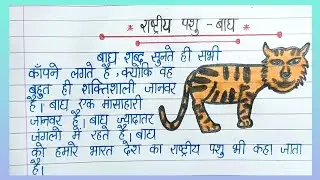 राष्ट्रीय पशु - बाघ
बाघ शब्द सुनते ही सभी
काँपने लगते है, क्योकि वह
बहुत ही शक्तिशाली जानवर
है। बाघ एक मांसाहारी
जानवर है। बाघ ज्यादातर
जंगलो में रहते है। बाघ
को हमारे भारत देश का राष्ट्रीय पशु भी कहा जाता
है।